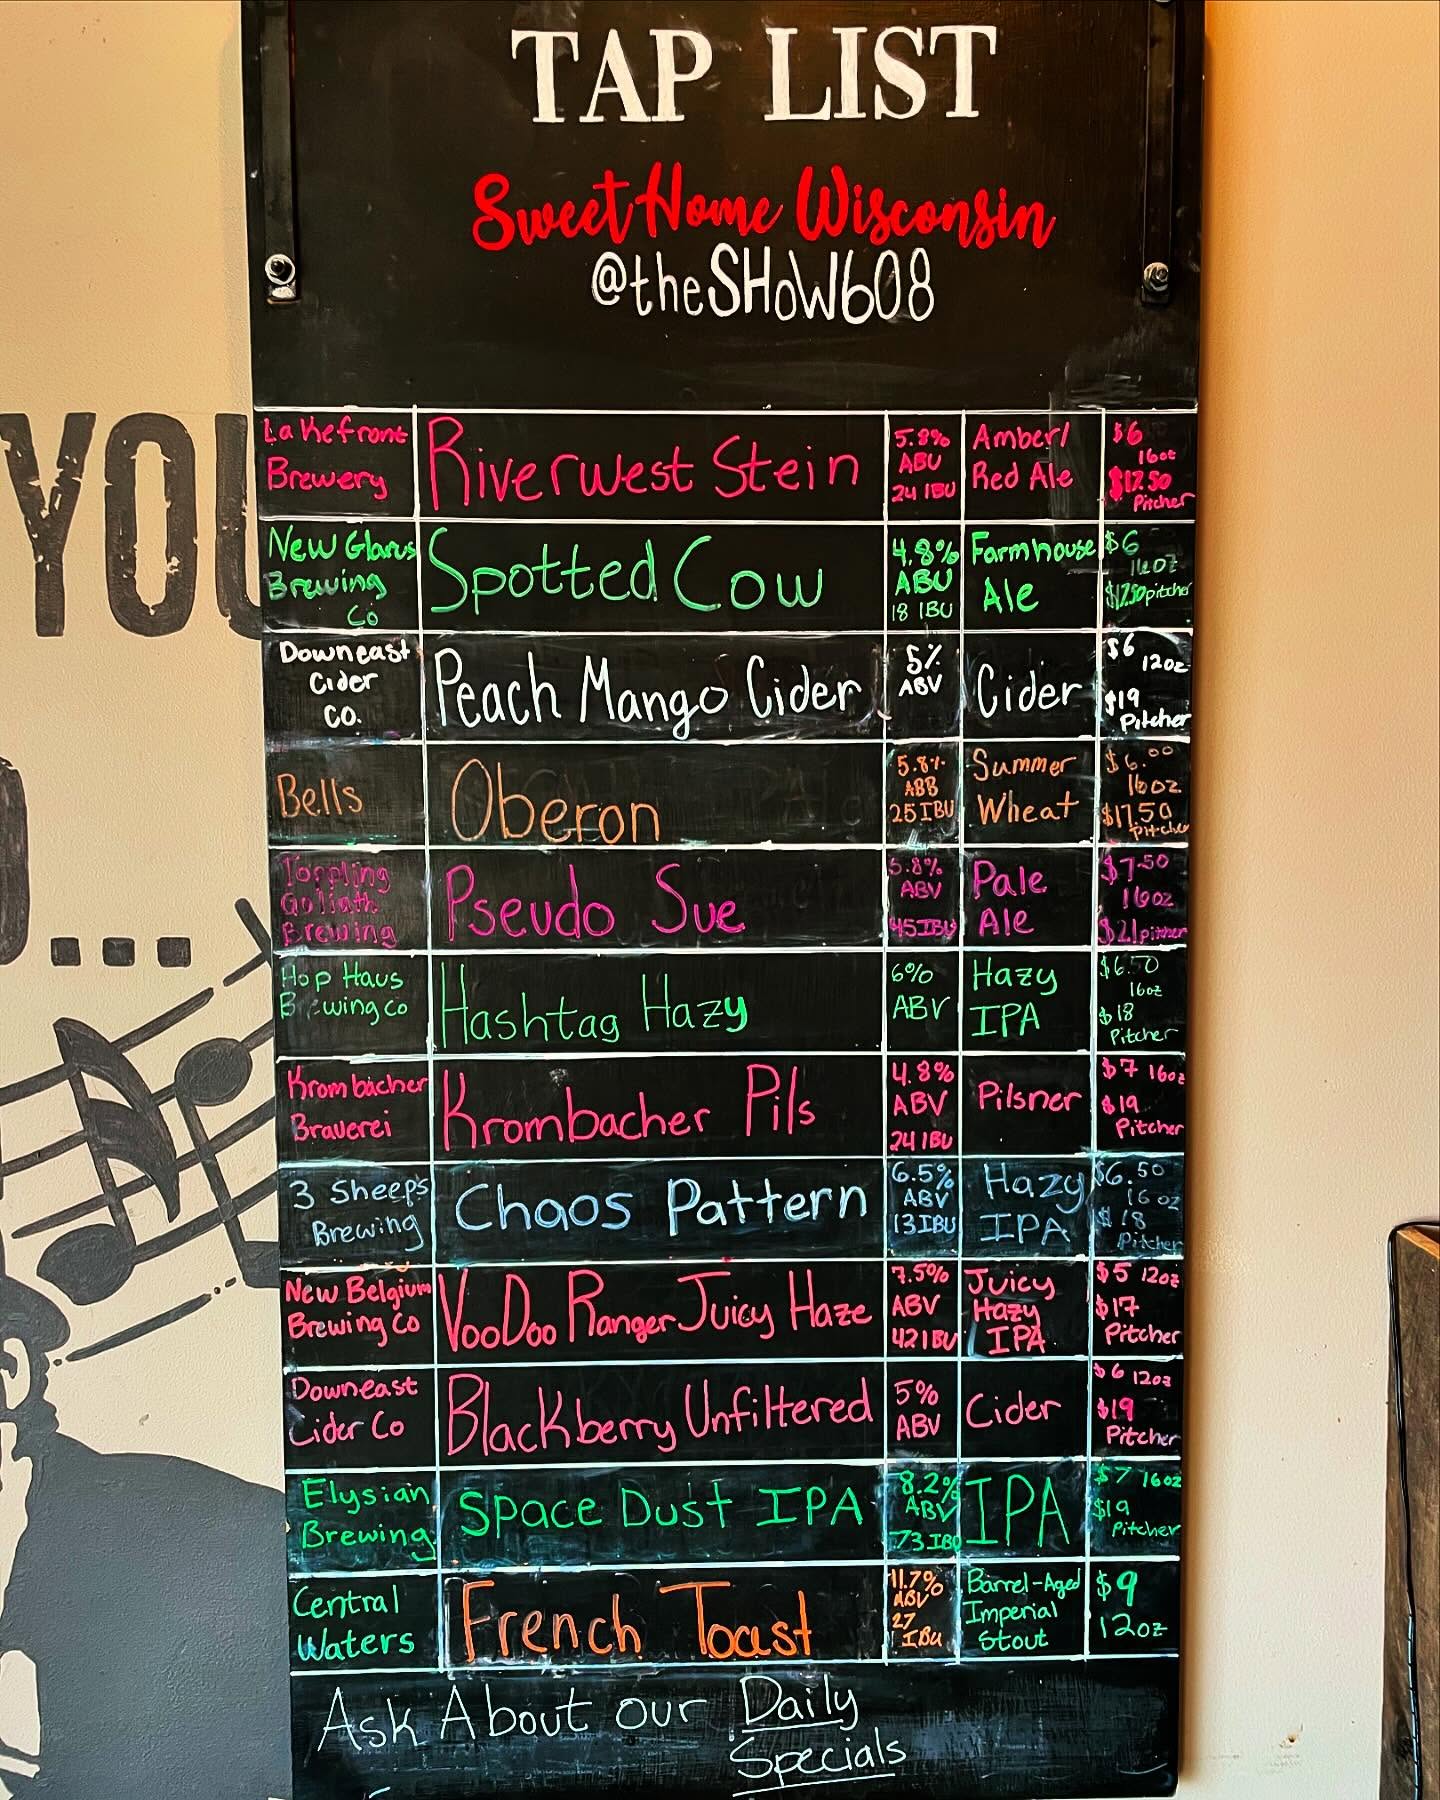 TAP LIST
Sweet Home Wisconsin
@theSHOW608
YOU
...
Lakefront
Brewery
Riverwest Stein
5.8%
ABU
24 IBU
Amber/
Red Ale
$6
16oz
$17.50
Pitcher
New Glarus
Brewing
Co
Spotted Cow
4.8%
ABU
18 IBU
Farmhouse
Ale
$6
16oz
$17.50 pitcher
Downeast
Cider
CO.
Peach Mango Cider
5%
ABV
Cider
$6
12oz
$19
Pitcher
Bells
Oberon
5.8%
ABB
25 IBU
Summer
Wheat
$6.00
16oz
$17.50
Pitcher
Toppling
Goliath
Brewing
Pseudo Sue
5.8%
ABV
45 IBU
Pale
Ale
$7.50
16oz
$21 pitcher
Hop Haus
Brewing Co
Hashtag Hazy
6%
ABV
Hazy
IPA
$6.50
16oz
$18
Pitcher
Krombacher
Brauerei
Krombacher Pils
4.8%
ABV
24 IBU
Pilsner
$7 16oz
$19
Pitcher
3 Sheeps
Brewing
Chaos Pattern
6.5%
ABV
13 IBU
Hazy
IPA
$6.50
16 oz
$18
Pitcher
New Belgium
Brewing Co
VooDoo Ranger Juicy Haze
7.5%
ABV
42 IBU
Juicy
Hazy
IPA
$5 12oz
$17
Pitcher
Downeast
Cider Co
Blackberry Unfiltered
5%
ABV
Cider
$6 12oz
$19
Pitcher
Elysian
Brewing
Space Dust IPA
8.2%
ABV
73 IBU
IPA
$7 16oz
$19
Pitcher
Central
Waters
French Toast
11.7%
ABV
27
IBU
Barrel-Aged
Imperial
Stout
$9
12oz
Ask About our Daily
Specials